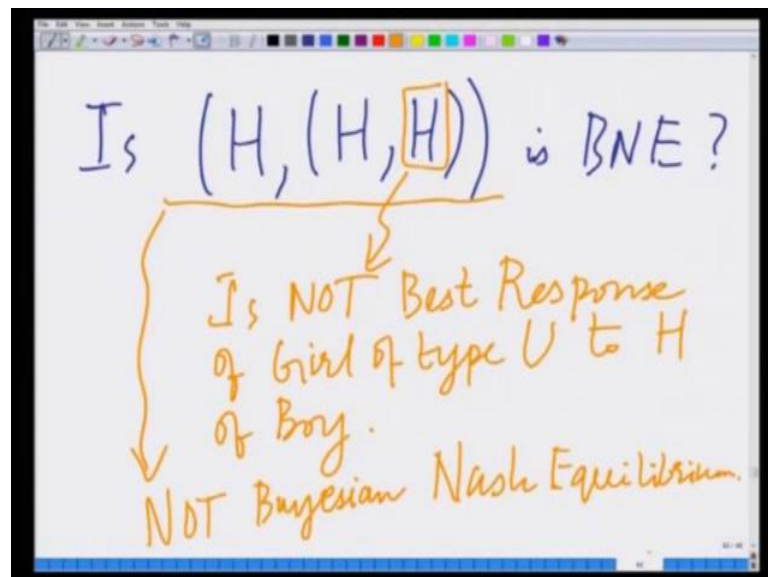 File Edit View Insert Actions Tools Help
Is (H, (H, H)) is BNE?
Is NOT Best Response
of Girl of type U to H
of Boy.
NOT Bayesian Nash Equilibrium.